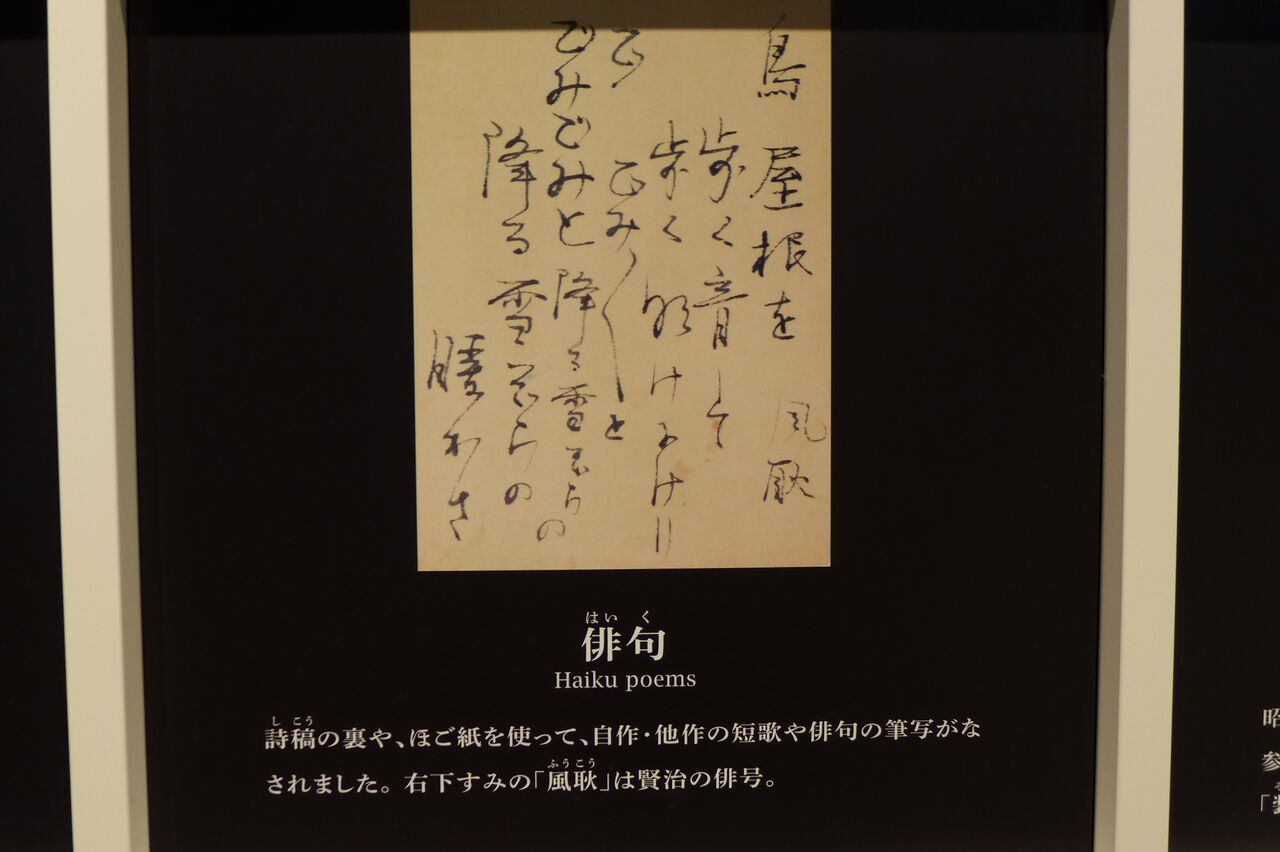 鳥屋根を 風耿
歩く音して
歩く明けにけり
ご ごみ〱と
ごみごみと降る雪ぞらの
降る雪ぞらの
暖かさ
はいく
俳句
Haiku poems
しこう
詩稿の裏や、ほご紙を使って、自作・他作の短歌や俳句の筆写がな
ふうこう
されました。右下すみの「風耿」は賢治の俳号。
昭
参